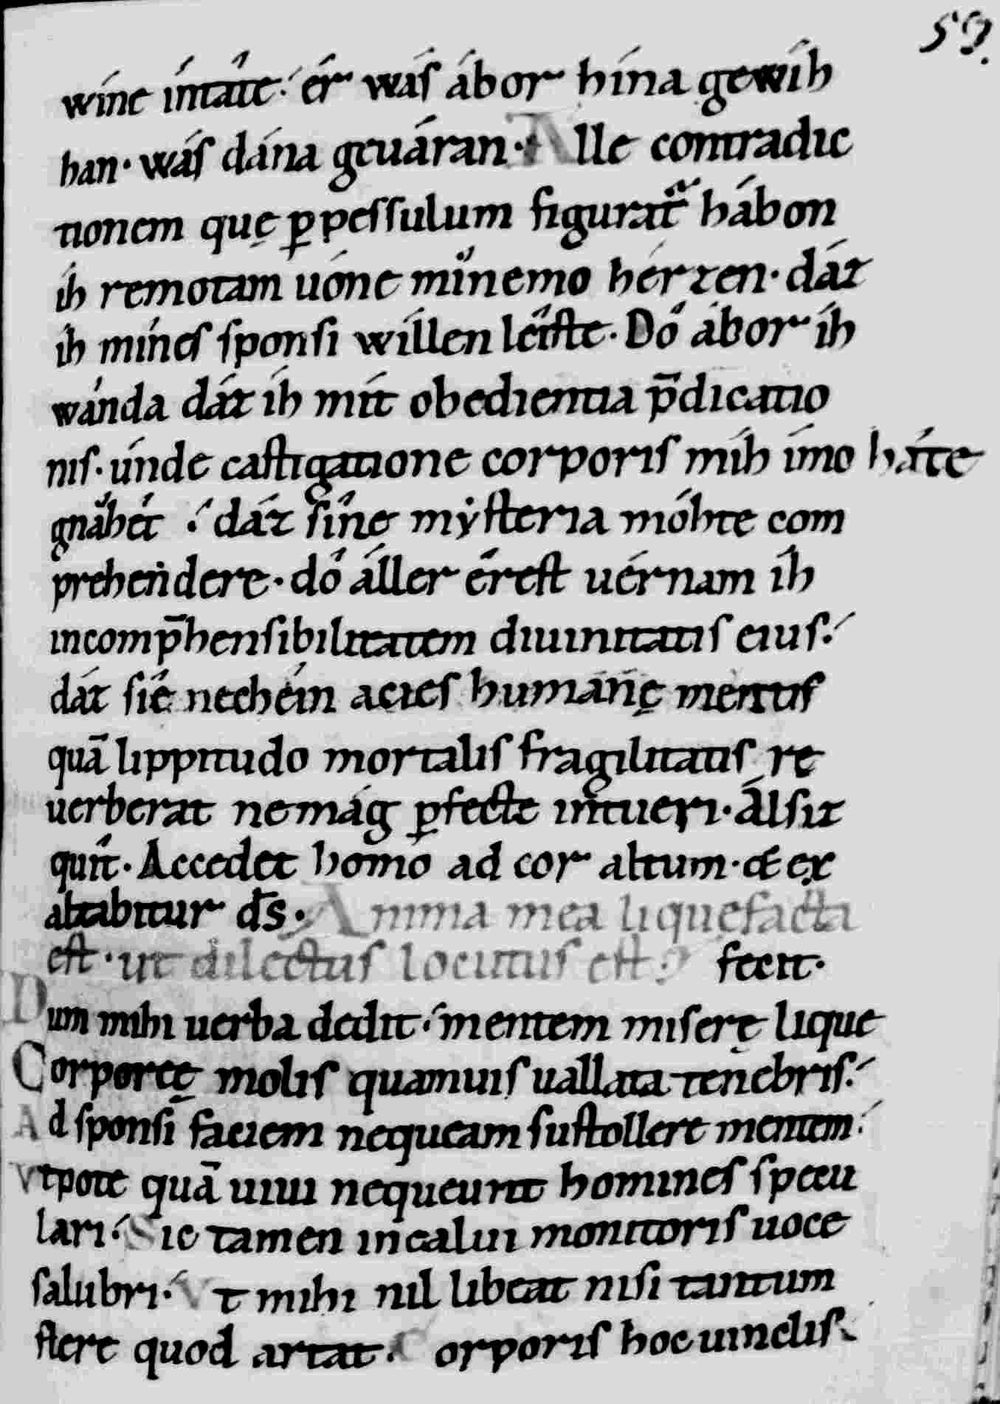 59.
wíne íntâte· ér wás ábor hína gewíh
han· wás dána geuáran· Alle contradic
tionem quę ꝑpessulum figuratͣ hábon
íh remotam uóne mı̊nemo hérzen· dáz
íh mínes sponsi wíllen léiste· Dó ábor íh
wánda dáz íh mít obedientia p̄dicatio
nis· únde castigatione corporis míh ímo háte
gnåhet ·́ dáz síne mẏsteria móhte com
prehendere· dó áller érest uérnam íh
incomp̄hensibilitatem diuinitatis eius·́
dáz síe nechéin acies humánę mentis
quā lippitudo mortalis fragilitatis re
uerberat nemág ꝑfecte intueri· Álsiz
quít· Accedet homo ad cor altum· & ex
altabitur d̄s· Anima mea liquefacta
est· ut dilectus locutus est· fecit·
Dum mihi uerba dedit·́ mentem miserę lique
Corporeę molis quamuis uallata tenebris·́
Ad sponsi faciem nequeam sustollere mentem·́
Vtpote quā uiui nequeunt homines specu
lari·́ Sic tamen incalui monitoris uoce
salubri·́ Vt mihi nil libeat nisi tantum
flere quod artat· Corporis hoc uinclis·